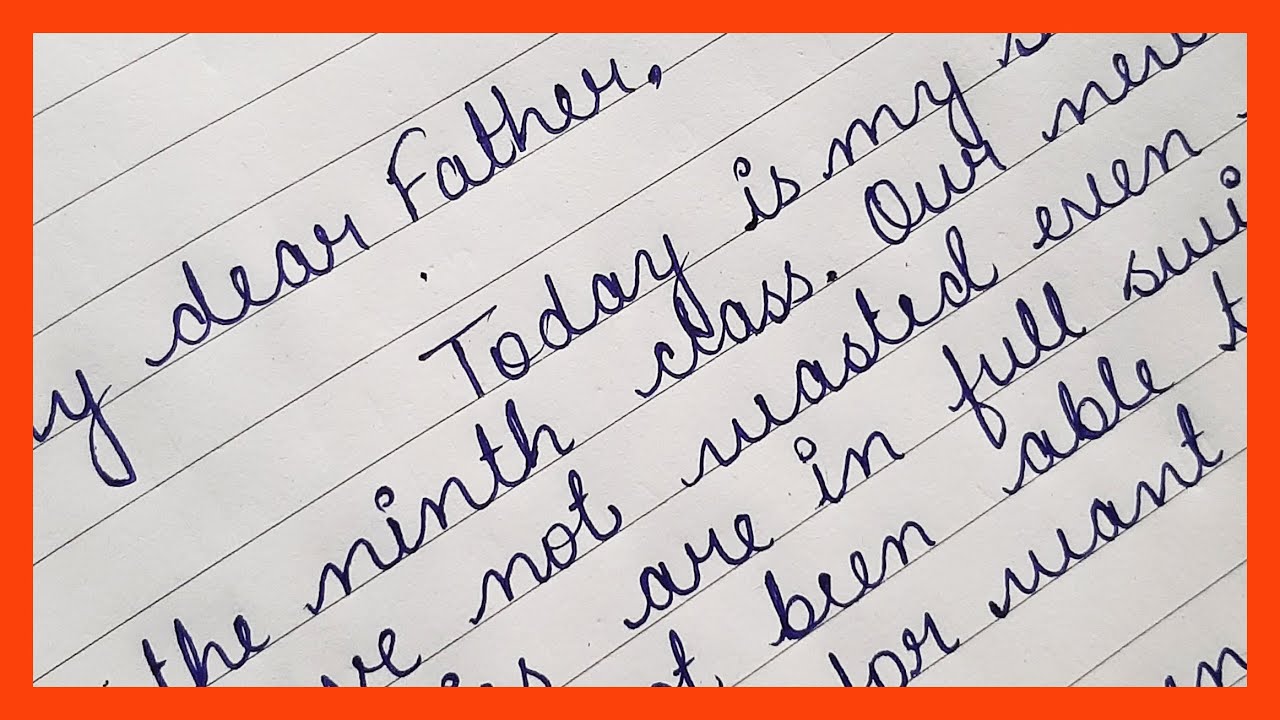 y dear Father,
Today is my
the ninth class. Our
ve not wasted even
are in full swi
been able t
for want